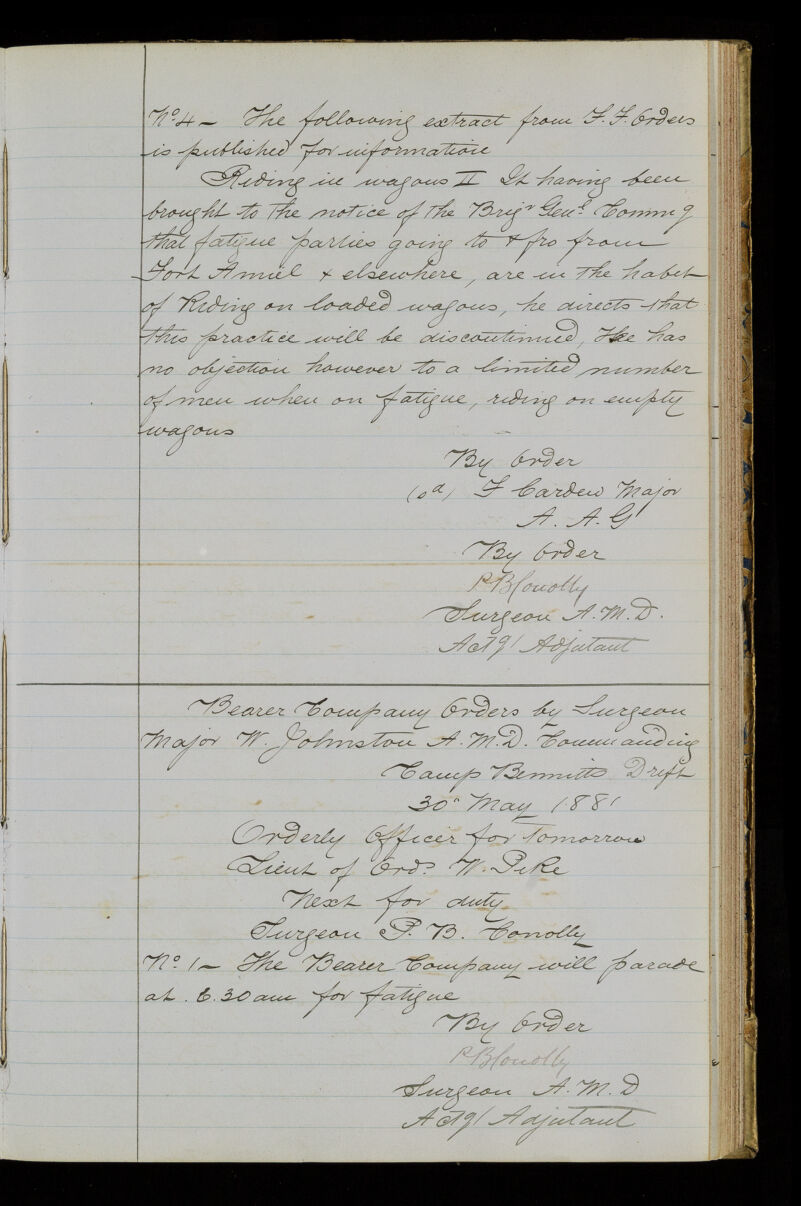 No 4 - The following extract from F. F. Orders
is published for information
Riding in wagons II It having been
brought to the notice of the Brigr Genl Commg
that fatigue parties going to & fro from
Fort Amiel & elsewhere, are in the habit
of Riding on loaded wagons, he directs that
this practice will be discontinued, He has
no objection however to a limited number
of men when on fatigue, riding on empty
wagons
By Order
(sd) F Carden Major
A. A. G
By Order
P B Conolly
Surgeon A. M. D.
Actg/ Adjutant
Bearer Company Orders by Surgeon
Major W. Johnston A. M. D. Commanding
Camp Bennitts Drift
30th May 1881
Orderly Officer for Tomorrow
Lieut of Ords W. Pike
Next for duty
Surgeon P. B. Conolly
No 1 - The Bearer Company will parade
at 6.30 am for fatigue
By Order
P B Conolly
Surgeon A. M. D
Actg/ Adjutant